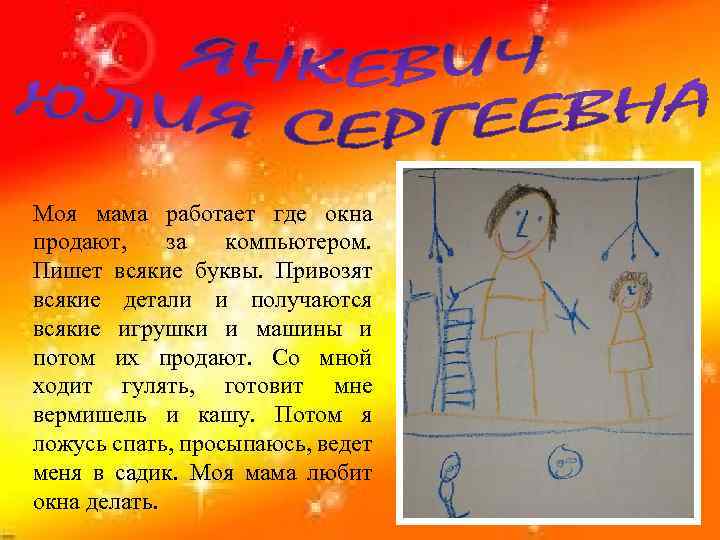 ЯНКЕВИЧ
ЮЛИЯ СЕРГЕЕВНА
Моя мама работает где окна
продают, за компьютером.
Пишет всякие буквы. Привозят
всякие детали и получаются
всякие игрушки и машины и
потом их продают. Со мной
ходит гулять, готовит мне
вермишель и кашу. Потом я
ложусь спать, просыпаюсь, ведет
меня в садик. Моя мама любит
окна делать.